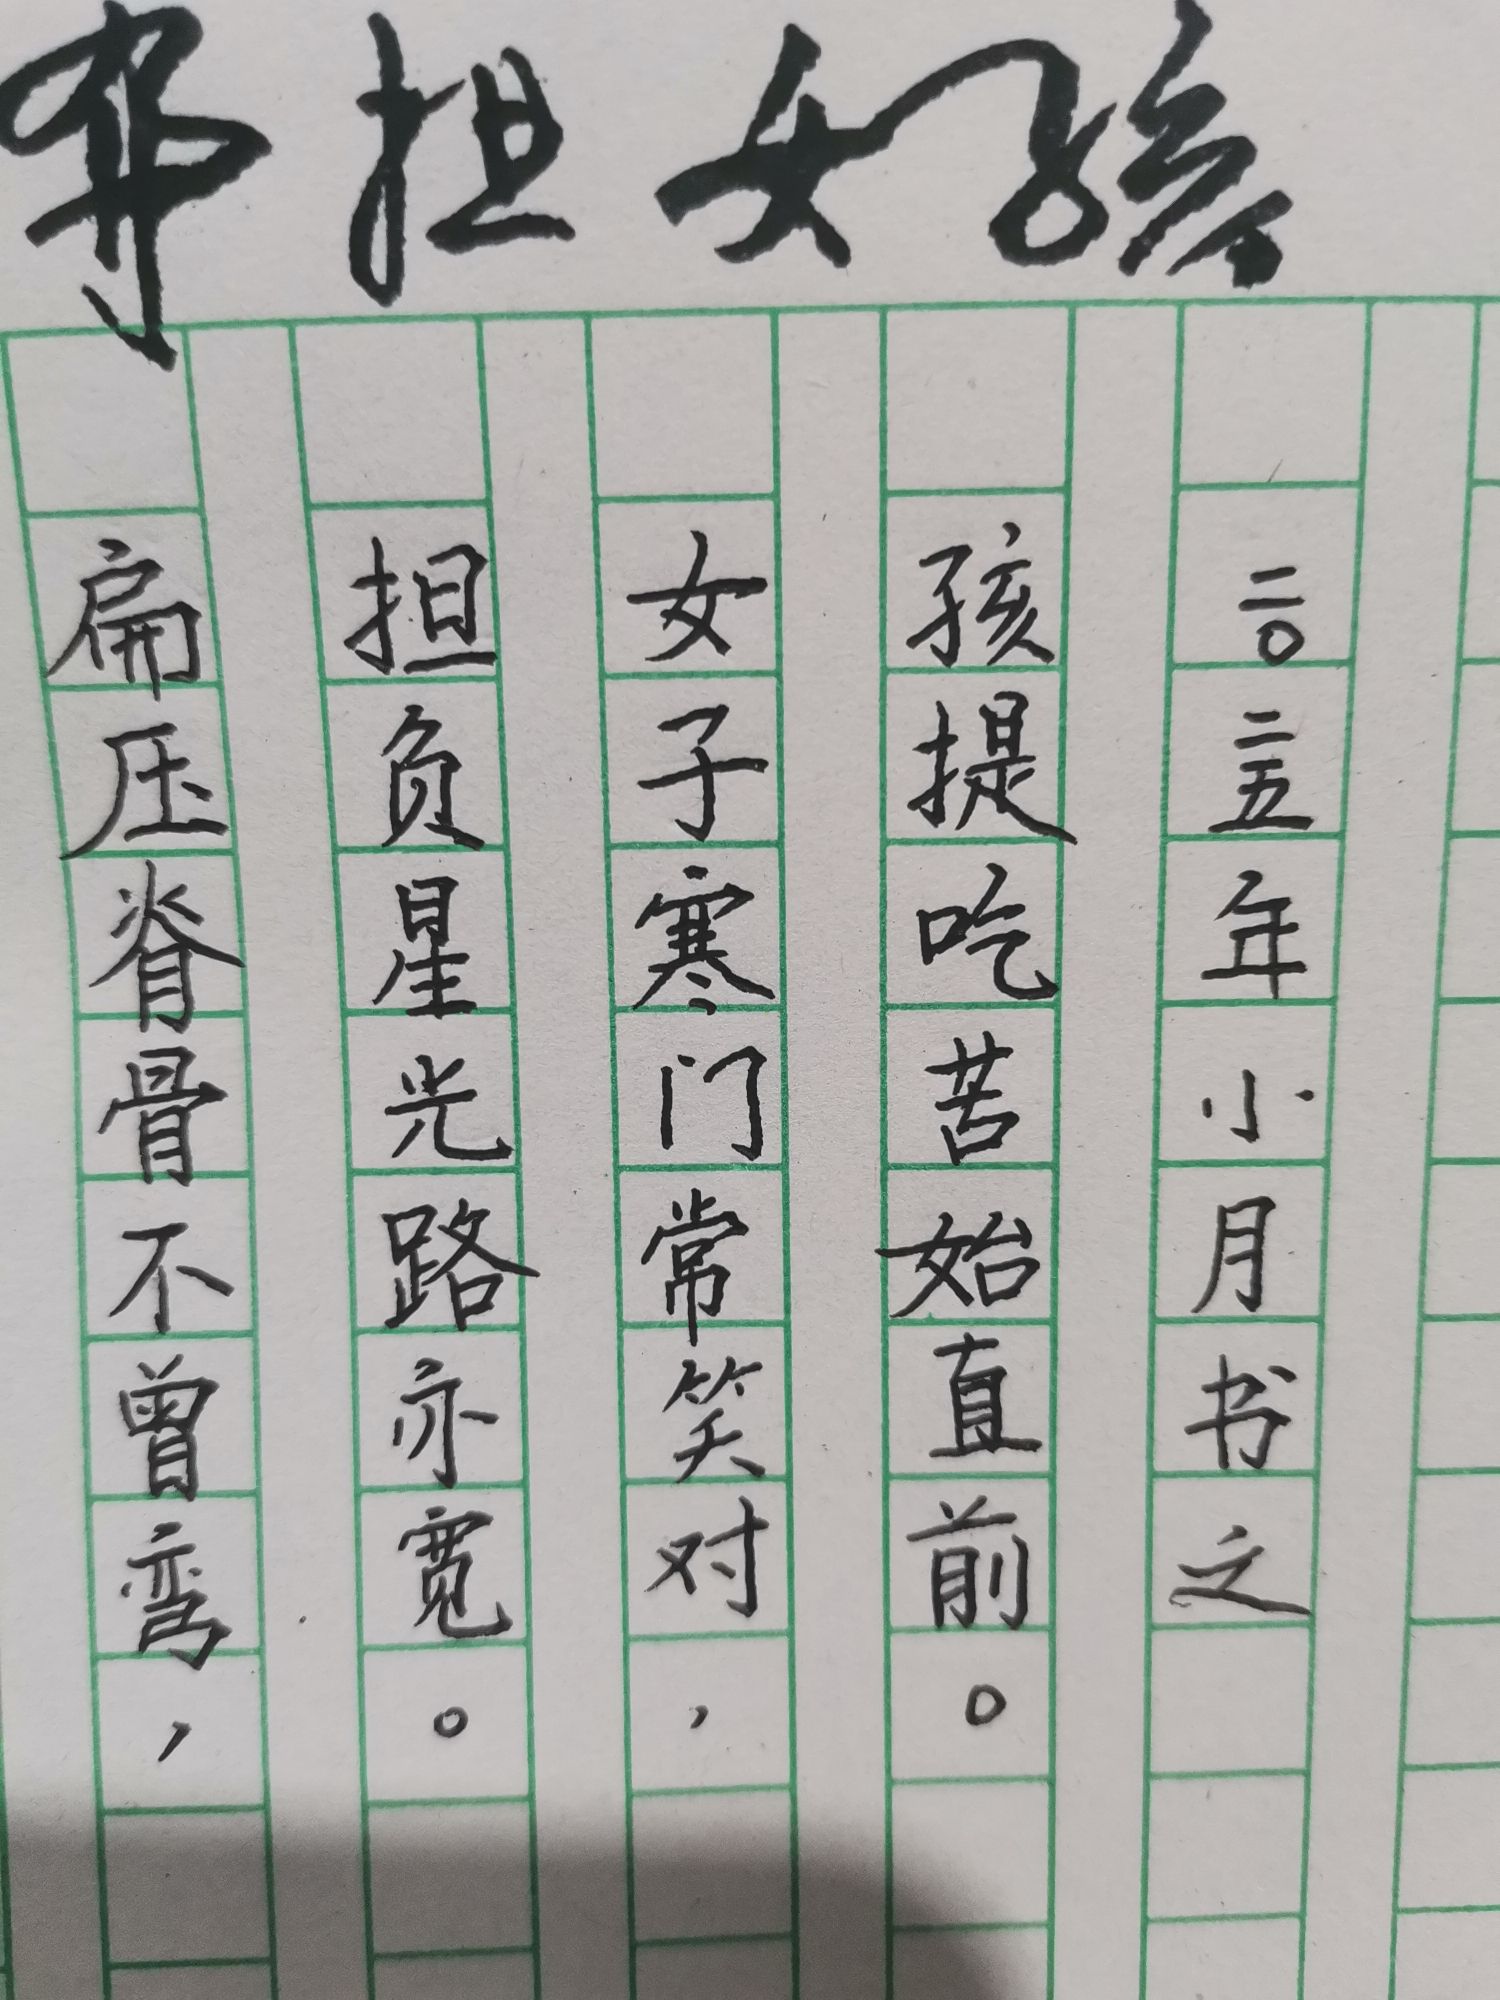 扁担女孩
扁压脊骨不曾弯，
担负星光路亦宽。
女子寒门常笑对，
孩提吃苦始直前。
二〇二五年小月书之